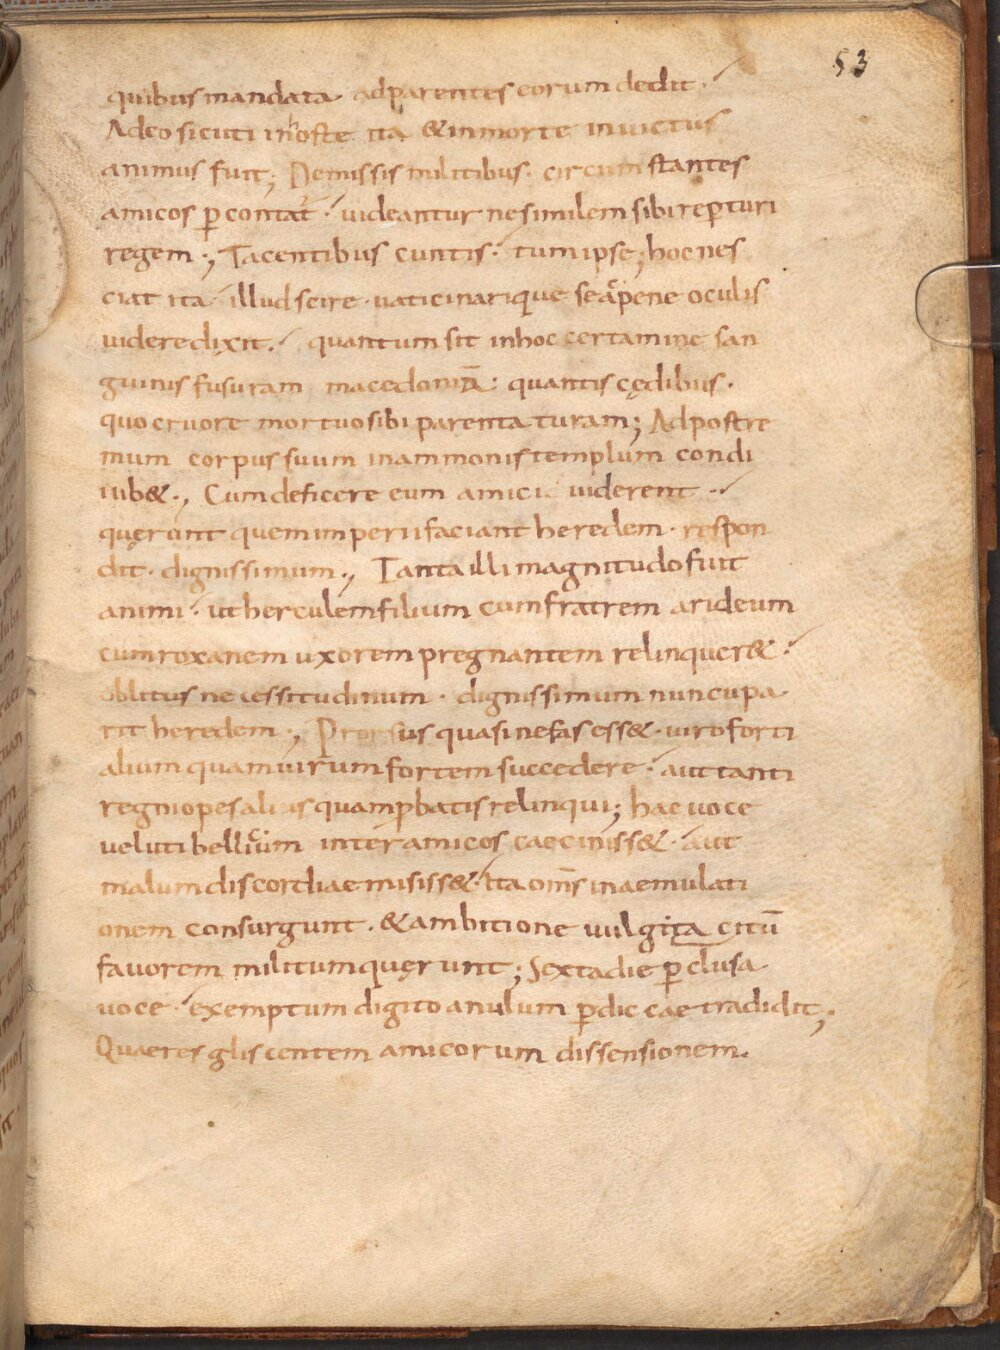 53
quibus mandata ad parentes eorum dedit.
Adeo sicuti in hoste ita & in morte inuictus
animus fuit; Demissis militibus. circum stantes
amicos p̱contat᷑. uideantur ne similem sibi repturi
regem; Tacentibus cuntis. tum ipse; hoc nes
ciat ita illud scire. uaticinarique se a᷑c pene oculis
uidere dixit. quantum sit in hoc certamine san
guinis fusuram macedoniā: quantis cędibus.
quo cruore mortuo sibi parenta turam; Ad postre
mum corpus suum in ammonis templum condi
iub&., Cum deficere eum amici uiderent.
quęrunt quem imperii faciant heredem. respon
dit. dignissimum., Tanta illi magnitudo fuit
animi. ut herculem filium cum fratrem arideum
cum roxanem uxorem pregnantem relinquer&.
oblitus necessitudinum. dignissimum nuncupa
rit heredem; Prorsus quasi nefas ess&. uiro forti
alium quam uirum fortem succedere. aut tanti
regni opes aliis quam p̱batis relinqui; hac uoce
ueluti bellicum inter amicos caeciniss&. aut
malum discordiae misiss&. ita om̄s in aemulati
onem consurgunt. & ambitione uulgi ta citū
fauorem militum quęrunt; Sexta die p̱clusa
uoce. exemptum digito anulum p̱diccae tradidit;
Quae res gliscentem amicorum dissensionem.